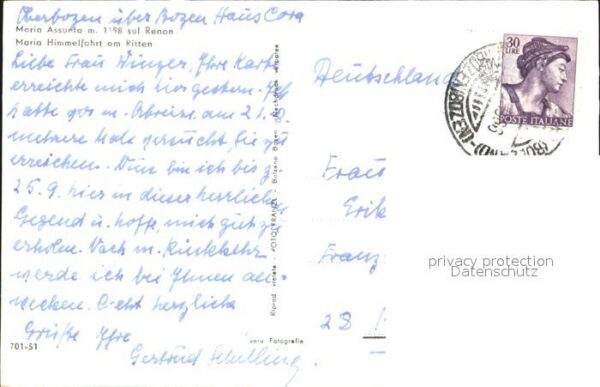 Oberbozen über Bozen Haus Cora
Maria Assunta m. 1198 sul Renon
Maria Himmelfahrt am Ritten
Liebe Frau Winzer, Ihre Karte
erreichte mich hier gestern. Ich
hatte vor m. Abreise am 21.8.
mehrere Male versucht Sie zu
erreichen. Nun bin ich bis z.
25.9. hier in dieser herrlichen
Gegend u. hoffe, mich gut zu
erholen. Nach m. Rückkehr
werde ich bei Ihnen an
Recht herzliche
Grüße Ihre
Gertrud Schilling
701-51
FOTO FRANZL - Bolzano Bozen
Riprod. vietata
Nachdruck verboten
vera Fotografie
Deutschland
30
LIRE
POSTE ITALIANE
Frau
Erik
Franz
28
privacy protection
Datenschutz